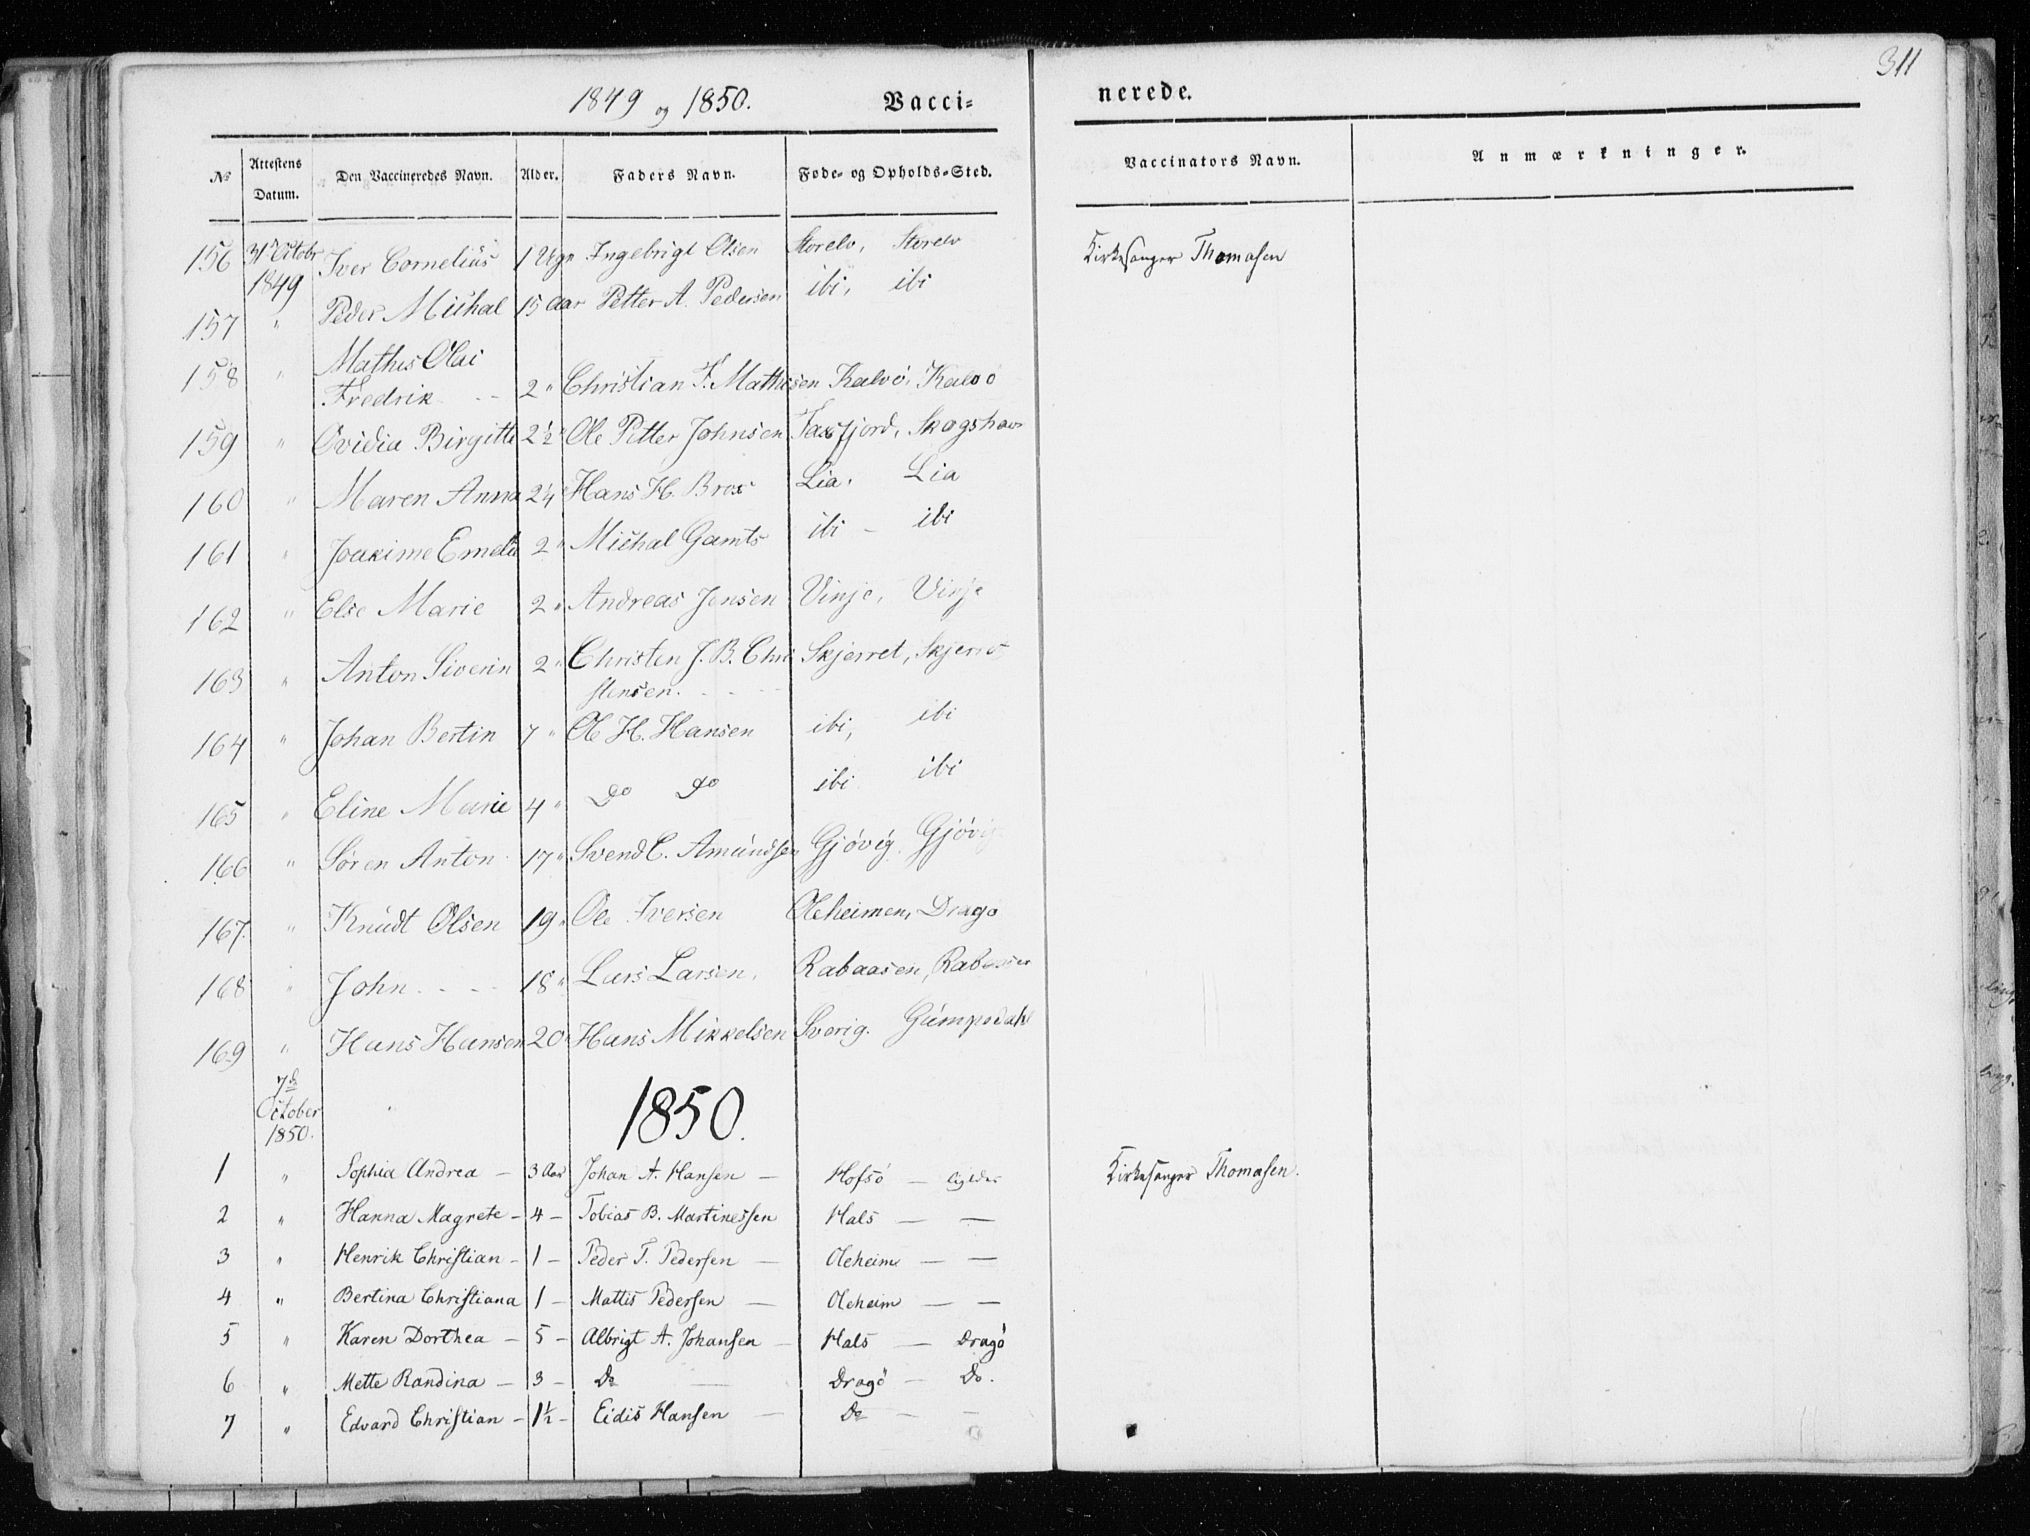 311
1849 og 1850. Vacci= nerede.
No Attestens Datum. Den Vaccineredes Navn. Alder. Faders Navn. Føde- og Opholds-Sted. Vaccinators Navn. Anmærkninger.
156 31 Octobr 1849 Iver Cornelius 1 Uge Ingebrigt Olsen Storelv, Storelv Kirkesanger Thomasen
157 " Peder Michal 15 Aar Petter A. Pedersen ibi, ibi
158 " Mathis Olai
Fredrik - - 2 " Christian F. Mathisen Kalvø, Kalvø
159 " Ovidia Birgitte 2½ " Ole Petter Johnsen Faxfjord, Skogshavn
160 " Maren Anna 2¼ Hans H. Brox Lia, Lia
161 " Joakime 2 " Michal Gamts ibi - ibi
162 " Else Marie 2 " Andreas Jensen Vinje, Vinje
163 " Anton Siverin 2 " Christen J. B. Chri
stensen. Skjerret,
164 " Johan Bertin 7 " Ole H. Hansen ibi, ibi
165 " Eline Marie 4 " Do Do ibi ibi
166 " Søren Anton 17 " Svend C. Amundsen Gjövig, Gjövig
167. " Knudt Olsen 19 " Ole Iversen Oleheimen, Dragø
168 " John - - - 18 " Lars Larsen, Rabaasen, Rabaasen
169 " Hans Hansen 20 Hans Mikkelsen Sverig. Gumpedahl
7de October 1850. " 1850.
1 " Sophia Andrea - 3 Aar Johan A. Hansen - Hofsö - Kirkesanger Thomasen.
2 " Hanna Magrete - 4 - Tobias B. Martinessen Hals - -
3 " Henrik Christian - 1 - Peder T. Pedersen - Oleheim - -
4 " Bertina Christiana 1 - Mattis Pedersen - Oleheim - -
5 " Karen Dorthea - 5 - Albrigt A. Johansen - Hals - Dragö
6 " Mette Randina - 3 - Do - Dragö - Do.
7 " Edvard Christian - 1½ - Eidis Hansen - Do - -